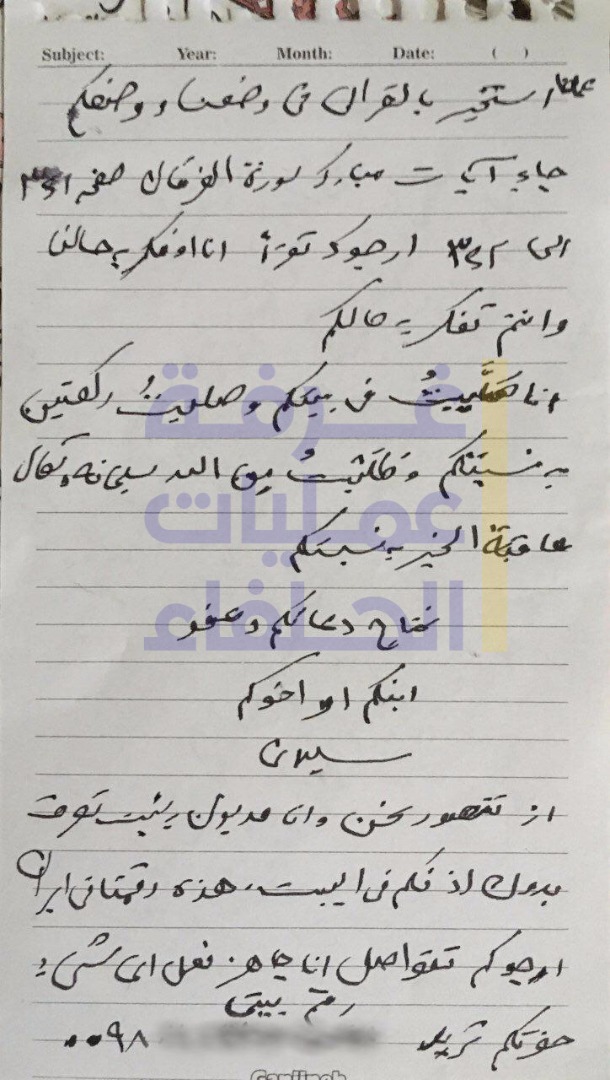 Subject: Year: Month: Date: ( )
استخير بالقران في وضعنا ووضعكم
جاء آيات مبارك سورة الفرقان صفحه
الى ٣٦٢ ارجوك تقرأ انا افكر به حالنا
وانتم تفكر به حالكم
انا صَلَّيتُ في بيتكم وصليتُ ركعتين
به نسبتكم وطَلَبتُ من الله سبحانه وتعال
عاقبة الخير به نسبتكم
نحتاج دعائكم وعفو
ابنكم او اخوكم
غرفة
عمليات
الحلفاء
وانا مديون
بدون اذنكم في البيت، هذه رقمنا في ايران
ارجوكم تتواصل انا جاهز نعل اي شيء
رقم بيتي
حقوتكم تريد ٠٠٩٨
Ganjineh